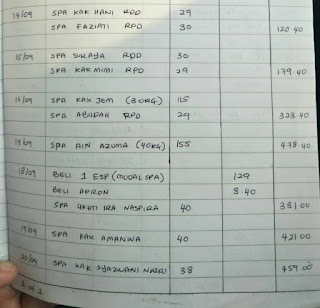 14/09 SPA KAK HANI RPD 29
SPA FAZIATI RPD 30 120.40
15/09 SPA SURAYA RPD 30
SPA KAK MIMI RPD 29 179.40
16/09 SPA KAK JEM (30RG) 115
SPA ABIDAH RPD 29 323.40
17/09 SPA AIN AZUMA (40RG) 155 478.40
18/09 BELI 1 ESP (MODAL SPA) 129
BELI APRON 8.40
SPA UKHTI IRA NASFIRA 40 381.00
19/09 SPA KAK AMANINA 40 421.00
20/09 SPA KAK SYAZWANI NAZRI 38 459.00
2 of 2